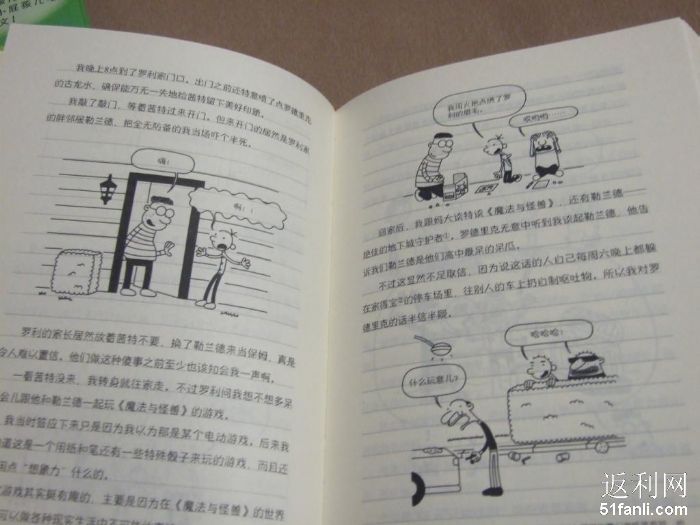 小屁孩儿
文！
我晚上8点到了罗利家门口，出门之前还特意喷了点罗德里克
的古龙水，确保能万无一失地给茜特留下美好印象。
我敲了敲门，等着茜特过来开门。但来开门的居然是罗利家
的胖邻居勒兰德，把全无防备的我当场吓个半死。
嗨！
啊！！
罗利的家长居然放着茜特不要，换了勒兰德来当保姆，真是
令人难以置信。他们做这种傻事之前至少也该知会我一声啊。
一看茜特没来，我转身就往家走。不过罗利问我想不想多呆
会儿跟他和勒兰德一起玩《魔法与怪兽》的游戏。
我当时答应下来只是因为我以为那是某个电动游戏。后来我
道这是一个用纸和笔还有一些特殊骰子来玩的游戏，而且还
用点“想象力”什么的。
游戏其实挺有趣的，主要是因为在《魔法与怪兽》的世界
可以做各种现实生活中
我用火把点燃了罗
利的眉毛。
哎哟哟……
回家后，我跟妈大谈特谈《魔法与怪兽》，还有勒兰德——
绝佳的地下城守护者①。罗德里克无意中听到我谈起勒兰德，他告
诉我们勒兰德是他们高中最足的呆瓜。
不过这显然不足取信，因为说这话的人自己每周六晚上都躲
在家得宝②的停车场里，往别人的车上扔自制呕吐物。所以我对罗
德里克的话半信半疑。
哈哈哈！
什么玩意儿？
返利网
51fanli.com